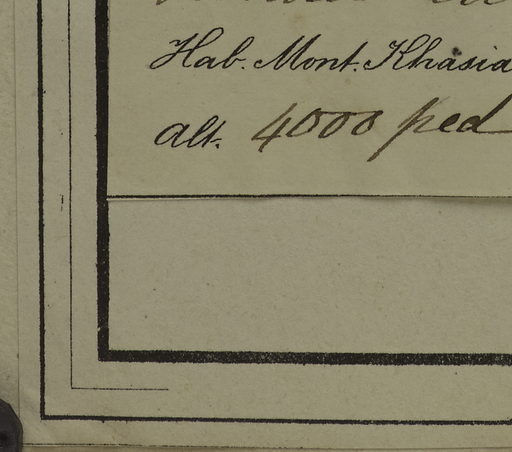 Hab. Mont. Khasia
alt. 4000 ped